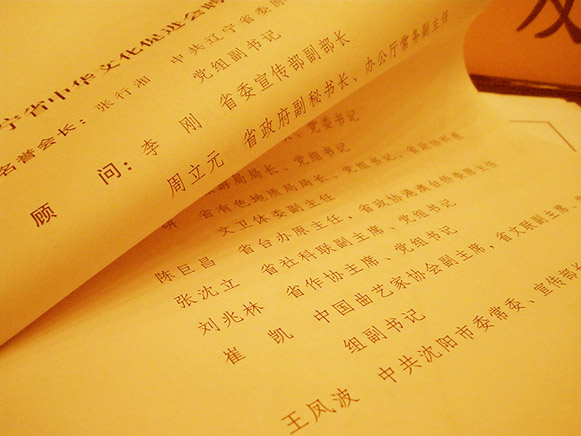 宁省中华文化促进会
名誉会长：张行湘 中共辽宁省委
党组副书记
顾 问：李 刚 省委宣传部副部长
周立元 省政府副秘书长、办公厅常务副主任
局长、党委书记
局局长、党组书记
省有色地质局局长、党组书记、省政协
文卫体委副主任
陈巨昌 省台办原主任，省政协港澳台侨委原主任
张沈立 省社科联副主席、党组书记
刘兆林 省作协主席、党组书记
崔 凯 中国曲艺家协会副主席，省文联副主席、
组副书记
王凤波 中共沈阳市委常委、宣传部长
发